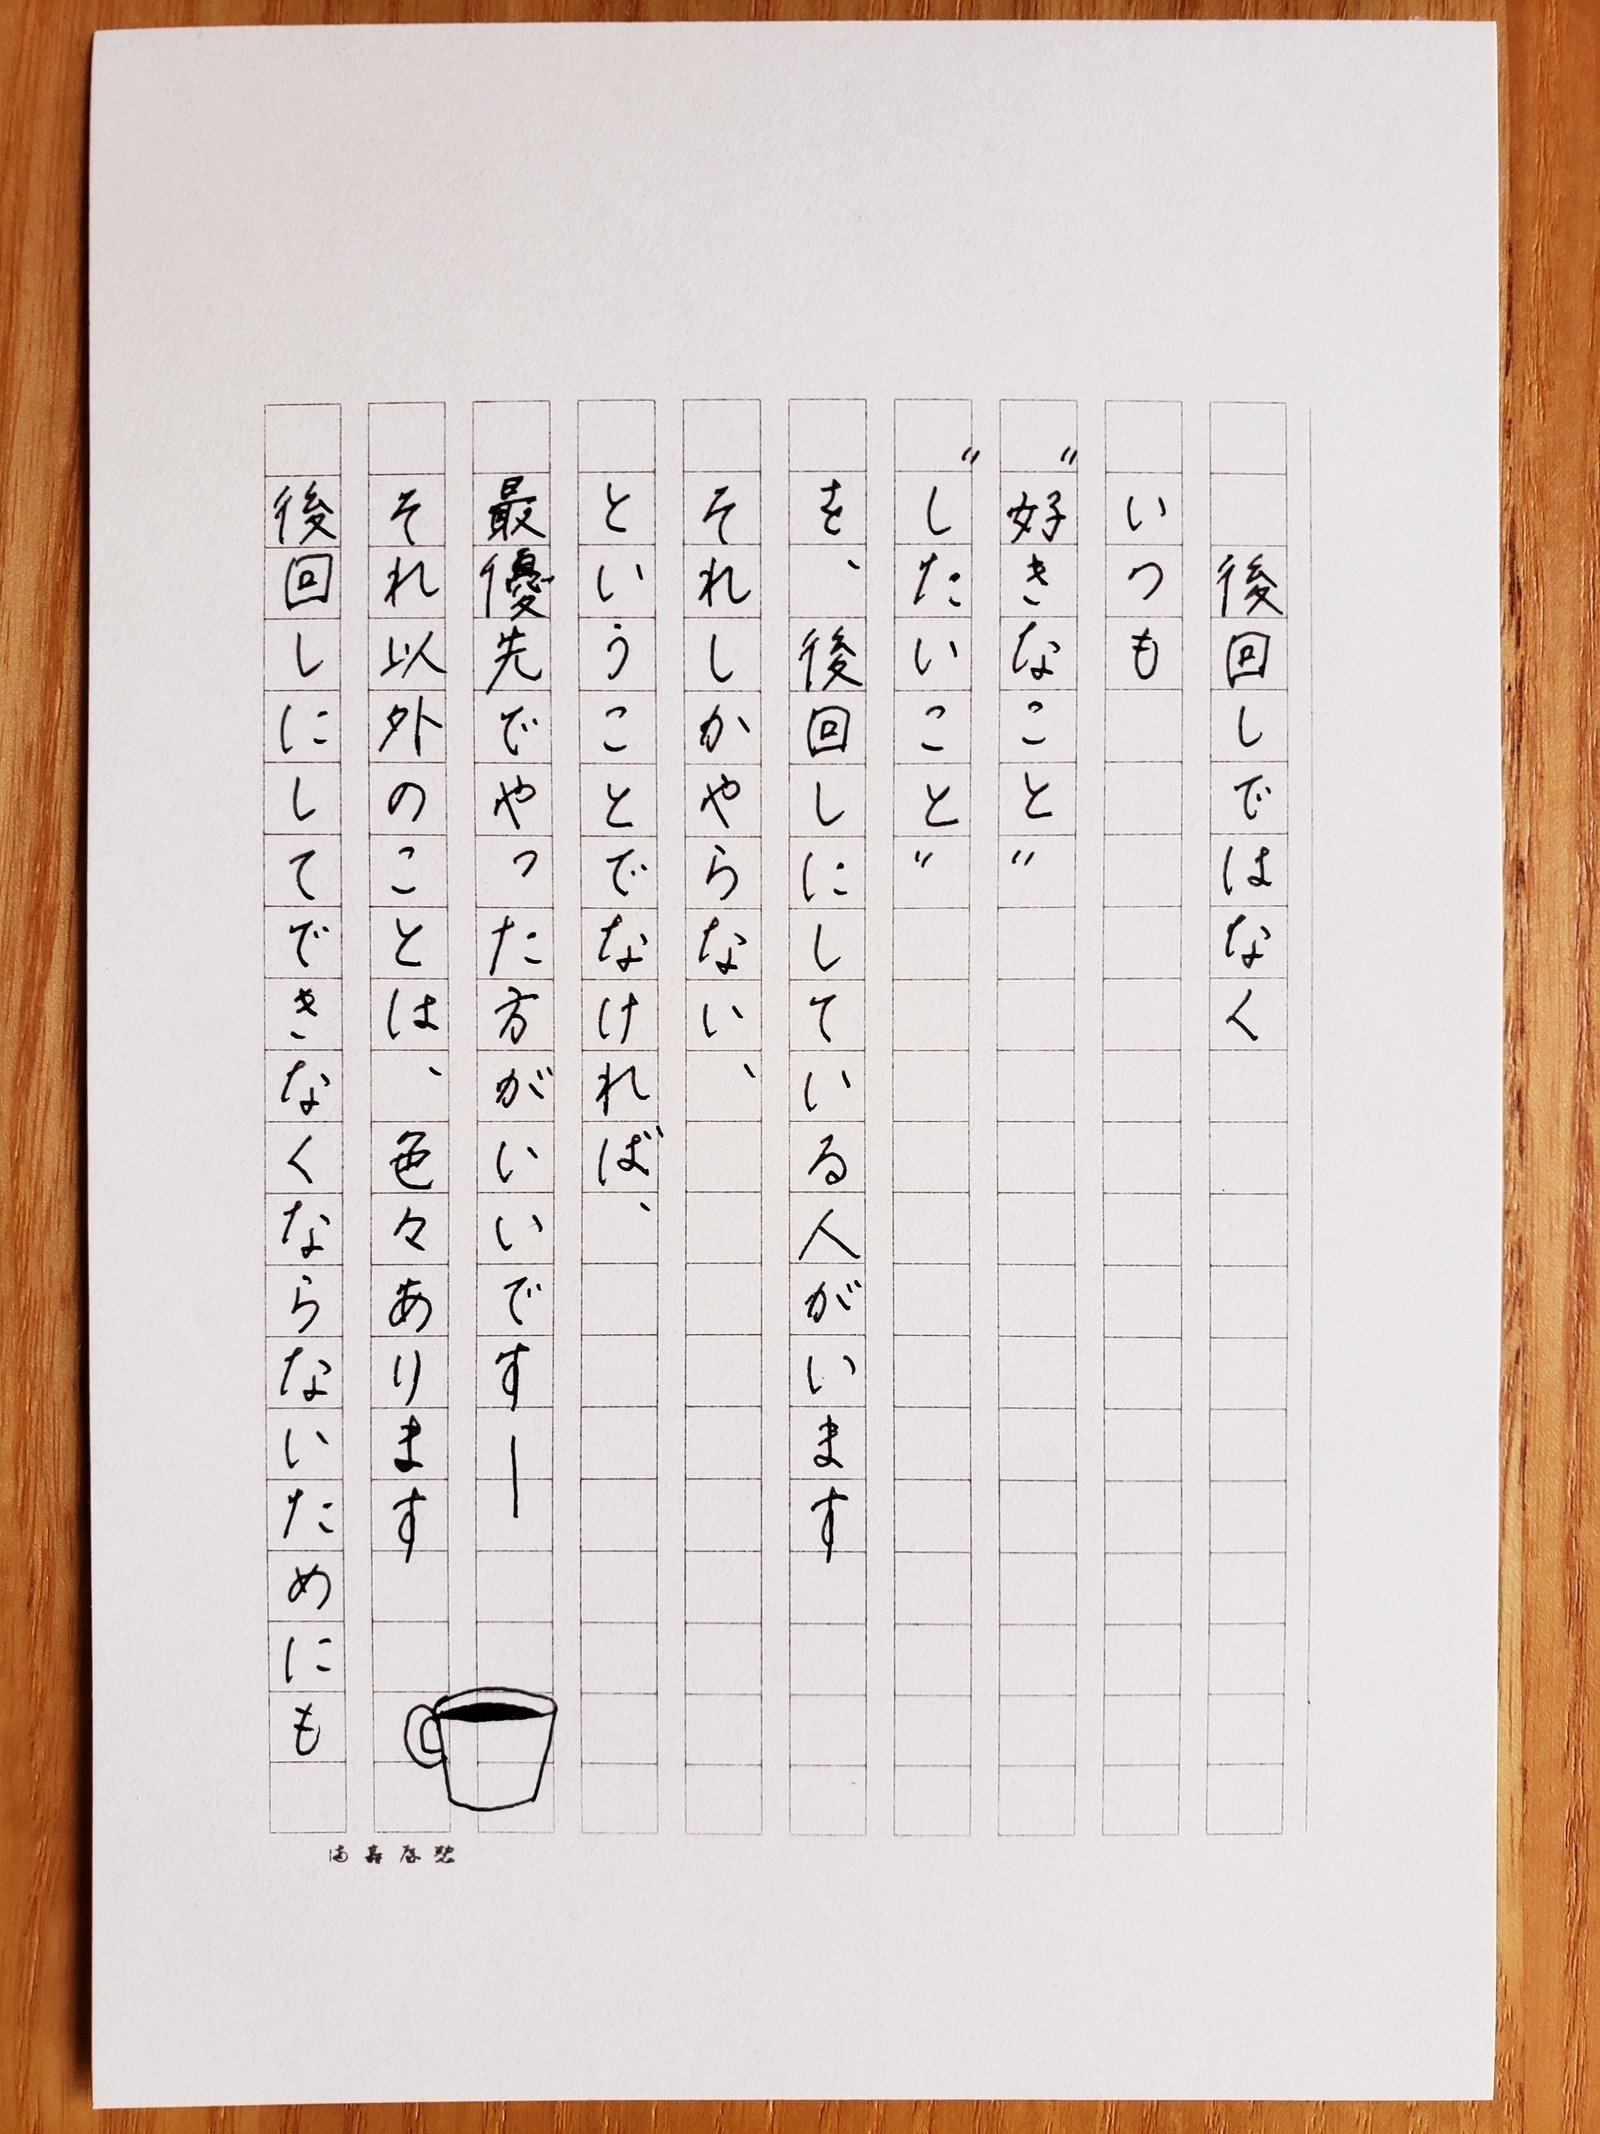 後回しではなく
いつも
"好きなこと"
"したいこと"
を、後回しにしている人がいます
それしかやらない、
ということでなければ、
最優先でやった方がいいですー
それ以外のことは、色々あります
後回しにしてできなくならないためにも